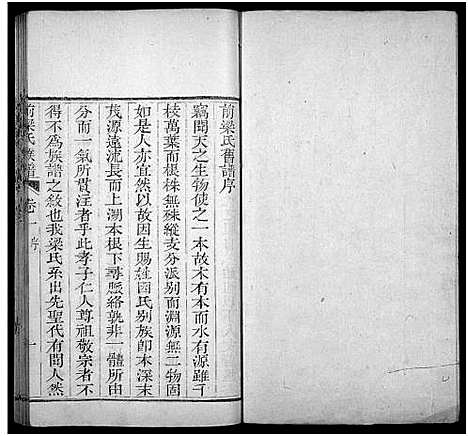 前梁氏舊譜序
竊聞天之生物使之一本故木有本而水有源雖千
枝萬葉而根株無殊縱支分派別而淵源無二物固
如是人亦宜然以故因生賜姓因氏別族卽本深末
茂源遠流長而上溯本根下尋懸絡孰非一體所由
分而一氣所貫注者乎此孝子仁人尊祖敬宗者不
得不為族譜之敘也我梁氏系出先聖代有聞人然
前梁氏族譜
卷一
序
一